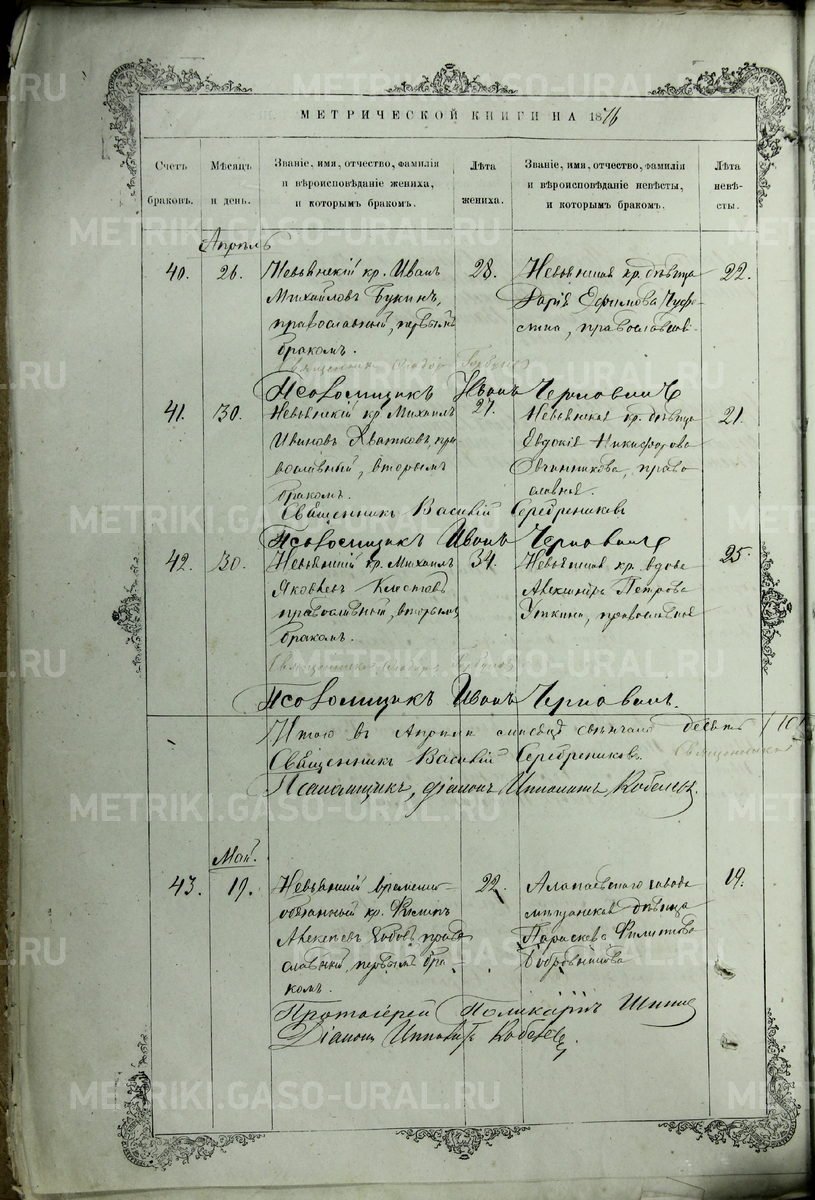 МЕТРИЧЕСКОЙ КНИГИ НА 1876
Счетъ браковъ.
Мѣсяцъ и день.
Званіе, имя, отчество, фамилія
и вѣроисповѣданіе жениха,
и которымъ бракомъ.
Лѣта жениха.
Званіе, имя, отчество, фамилія
и вѣроисповѣданіе невѣсты,
и которымъ бракомъ.
Лѣта невѣ-
сты.
Апрѣль
40. 26. Невьянскій кр. Иванъ 28. Невьянская кр. дѣвица 22.
Михайловъ Букинъ, Дарія Ефимова
православный, первымъ православная
бракомъ.
Священникъ
Псаломщикъ Иванъ
41. 30. Невьянскій кр. Михаилъ 27. Невьянская кр. дѣвица 21.
Ивановъ Хватковъ, пра- Евдокія Никифорова
вославный, вторымъ Овчинникова, право-
бракомъ. славная.
Священникъ Василій Серебрениковъ
Псаломщикъ Иванъ
42. 30. Невьянскій кр. Михаилъ 34. Невьянская кр. вдова 25.
Яковлевъ Александра Петрова
православный, вторымъ Уткина, православная
бракомъ.
Священникъ
Псаломщикъ Иванъ
Итого въ Апрѣлѣ мѣсяцѣ десять /10/
Священникъ Василій Серебрениковъ. Священникъ
Псаломщикъ, діаконъ Ипполитъ Кобелевъ
Май.
43. 19. Невьянскій временно- 22. Алапаевского завода 19.
обязанный кр. Филипъ мѣщанская дѣвица
Алексѣевъ право- Параскева Филиппова
славный, первымъ бра-
комъ.
Протоіерей Поликарпъ
Діаконъ Ипполитъ Кобелевъ
METRIKI.GASO-URAL.RU